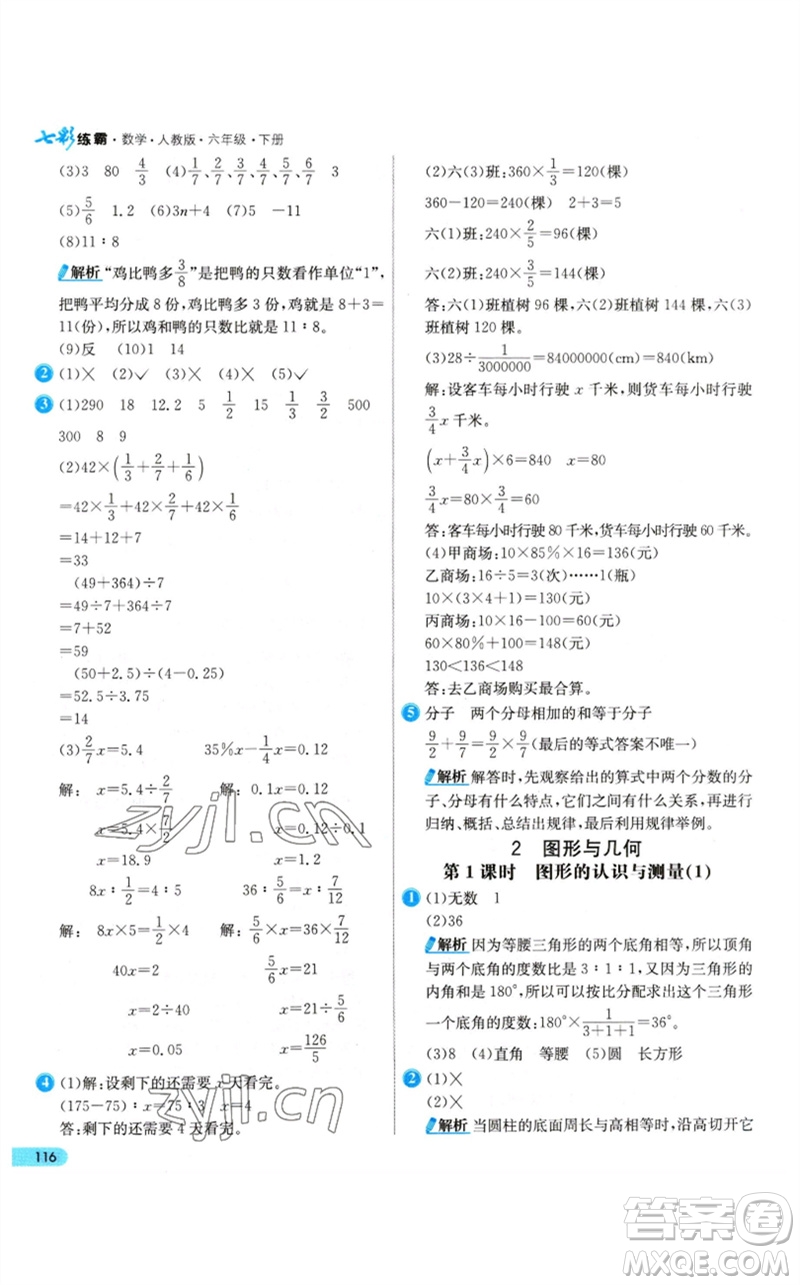 七彩练霸·数学·人教版·六年级·下册
(3)3 80 4/3 (4)1/7、2/7、3/7、4/7、5/7、6/7 3
(5)5/6 1.2 (6)3n+4 (7)5 -11
(8)11∶8
解析 “鸡比鸭多3/8”是把鸭的只数看作单位“1”,
把鸭平均分成8份,鸡比鸭多3份,鸡就是8+3=
11(份),所以鸡和鸭的只数比就是11∶8。
(9)反 (10)1 14
2 (1)✕ (2)✓ (3)✕ (4)✕ (5)✓
3 (1)290 18 12.2 5 1/2 15 1/3 500
300 8 9
(2)42×(1/3+2/7+1/6)
=42×1/3+42×2/7+42×1/6
=14+12+7
=33
(49+364)÷7
=49÷7+364÷7
=7+52
=59
(50+2.5)÷(1.25×3)
=52.5÷3.75
=14
(3)2/7x=5.4 35%x-1/4x=0.12
解: x=5.4÷2/7 解: 0.1x=0.12
x=5.4×7/2 x=0.12÷0.1
x=18.9 x=1.2
8x∶1/2=4 5/6∶x=7/12∶36
解: 8x=1/2×4 解:7/12x=5/6×36
40x=2 5/6x=21
x=2÷40 x=21÷5/6
x=0.05 x=126/5
4 (1)解:设剩下的还需要x天看完。
(175-75)∶x=75∶3 x=4
答:剩下的还需要4天看完。
116
(2)六(3)班:360×1/3=120(棵)
360-120=240(棵) 2+3=5
六(1)班:240×2/5=96(棵)
六(2)班:240×3/5=144(棵)
答:六(1)班植树96棵,六(2)班植树144棵,六(3)
班植树120棵。
(3)28÷1/3000000=84000000(cm)=840(km)
解:设客车每小时行驶x千米,则货车每小时行驶
3/4x千米。
(x+3/4x)×6=840 x=80
3/4x=80×3/4=60
答:客车每小时行驶80千米,货车每小时行驶60千米。
(4)甲商场:10×85%×16=136(元)
乙商场:16÷5=3(次)……1(瓶)
10×(3×4+1)=130(元)
丙商场:10×16-100=60(元)
60×80%+100=148(元)
130<136<148
答:去乙商场购买最合算。
5 分子 两个分母相加的和等于分子
9/2+9/7=9/2×9/7(最后的等式答案不唯一)
解析 解答时,先观察给出的算式中两个分数的分
子、分母有什么特点,它们之间有什么关系,再进行
归纳、概括、总结出规律,最后利用规律举例。
2 图形与几何
第1课时 图形的认识与测量(1)
1 (1)无数 1
(2)36
解析 因为等腰三角形的两个底角相等,所以顶角
与两个底角的度数比是3∶1∶1,又因为三角形的
内角和是180°,所以可以按比分配求出这个三角形
一个底角的度数:180°×1/(3+1+1)=36°。
(3)8 (4)直角 等腰 (5)圆 长方形
2 (1)✕
(2)✕
解析 当圆柱的底面周长与高相等时,沿高切开它
zyjl.cn
zyjl.cn
答案卷
MXQE.COM